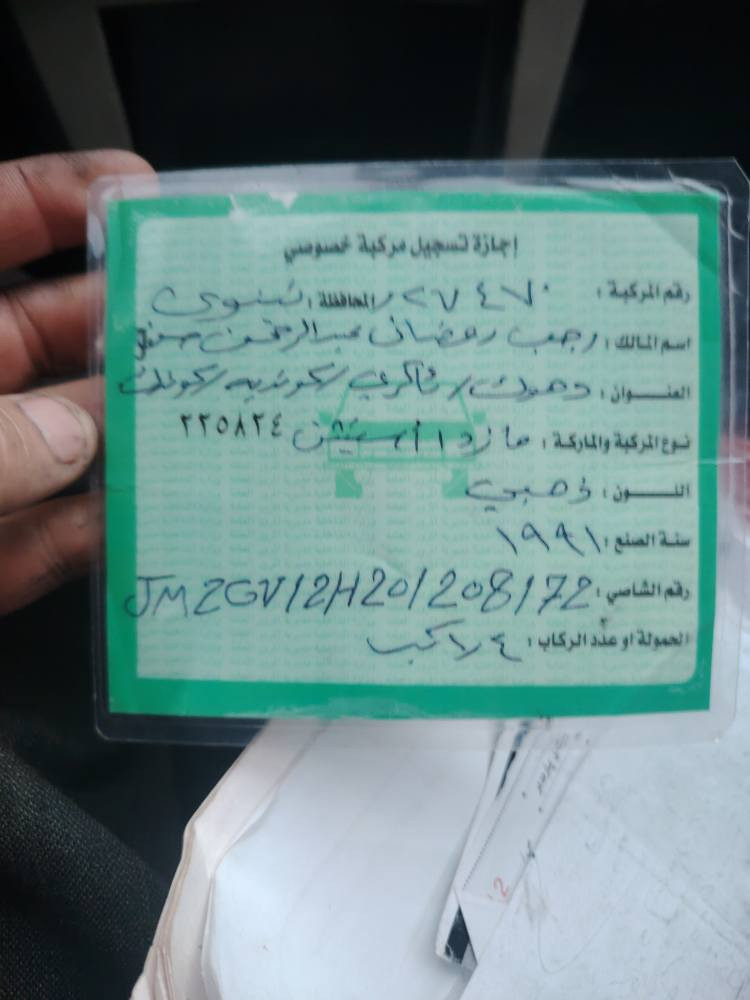 اجازة تسجيل مركبة خصوصي
رقم المركبة : ٢٧٤٧٠ / المحافظة : نينوى
اسم المالك : رجب رمضان عبدالرحمن
العنوان : دهوك /
نوع المركبة والماركة : مازدا ٢٢٥٨٢٤
اللـــون : ذهبي
سنة الصنع : ١٩٩١
رقم الشاصي : JMZGV12H201208172
الحمولة او عدد الركاب : ٤ راكب